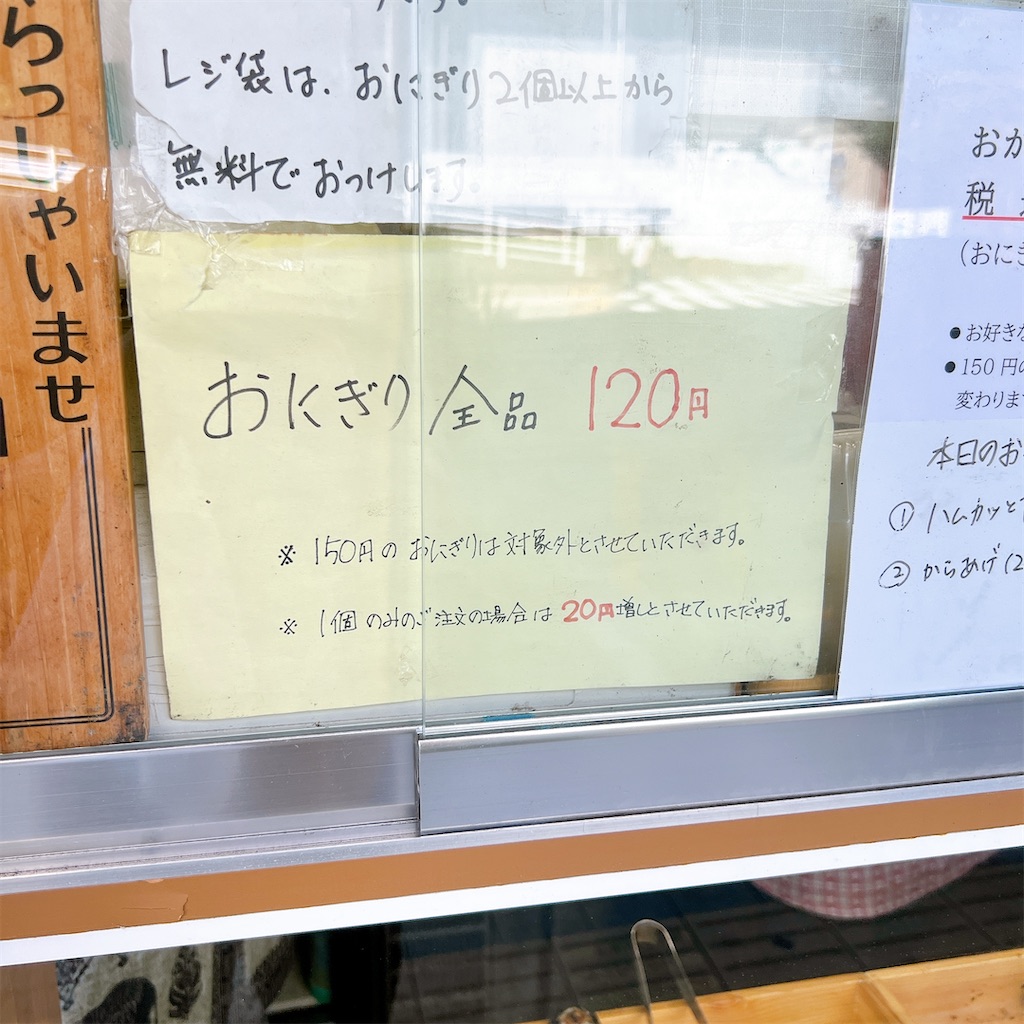 らっしゃいませ
レジ袋は、おにぎり2個以上から
無料でおつけします。
おにぎり全品 120円
※ 150円のおにぎりは対象外とさせていただきます。
※ 1個のみのご注文の場合は20円増しとさせていただきます。
おか
税
(おにぎ
●お好きな
●150円の
変わりま
本日のお
① ハムカツと
② からあげ(2